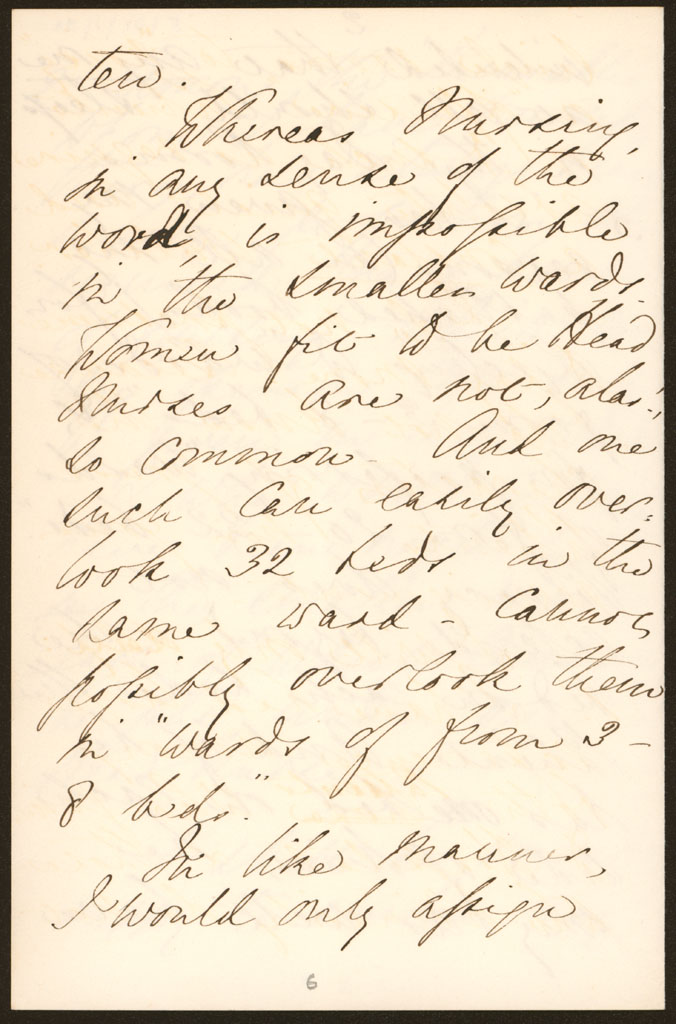 ten.
Whereas Nursing,
in any sense of the
word, is impossible
in the smaller wards.
Women fit to be Head
Nurses are not, alas!,
so common - And one
such can easily over=
look 32 beds in the
same ward - Cannot
possibly overlook them
in "wards of from 3 -
8 beds."
In like manner,
I would only assign
6